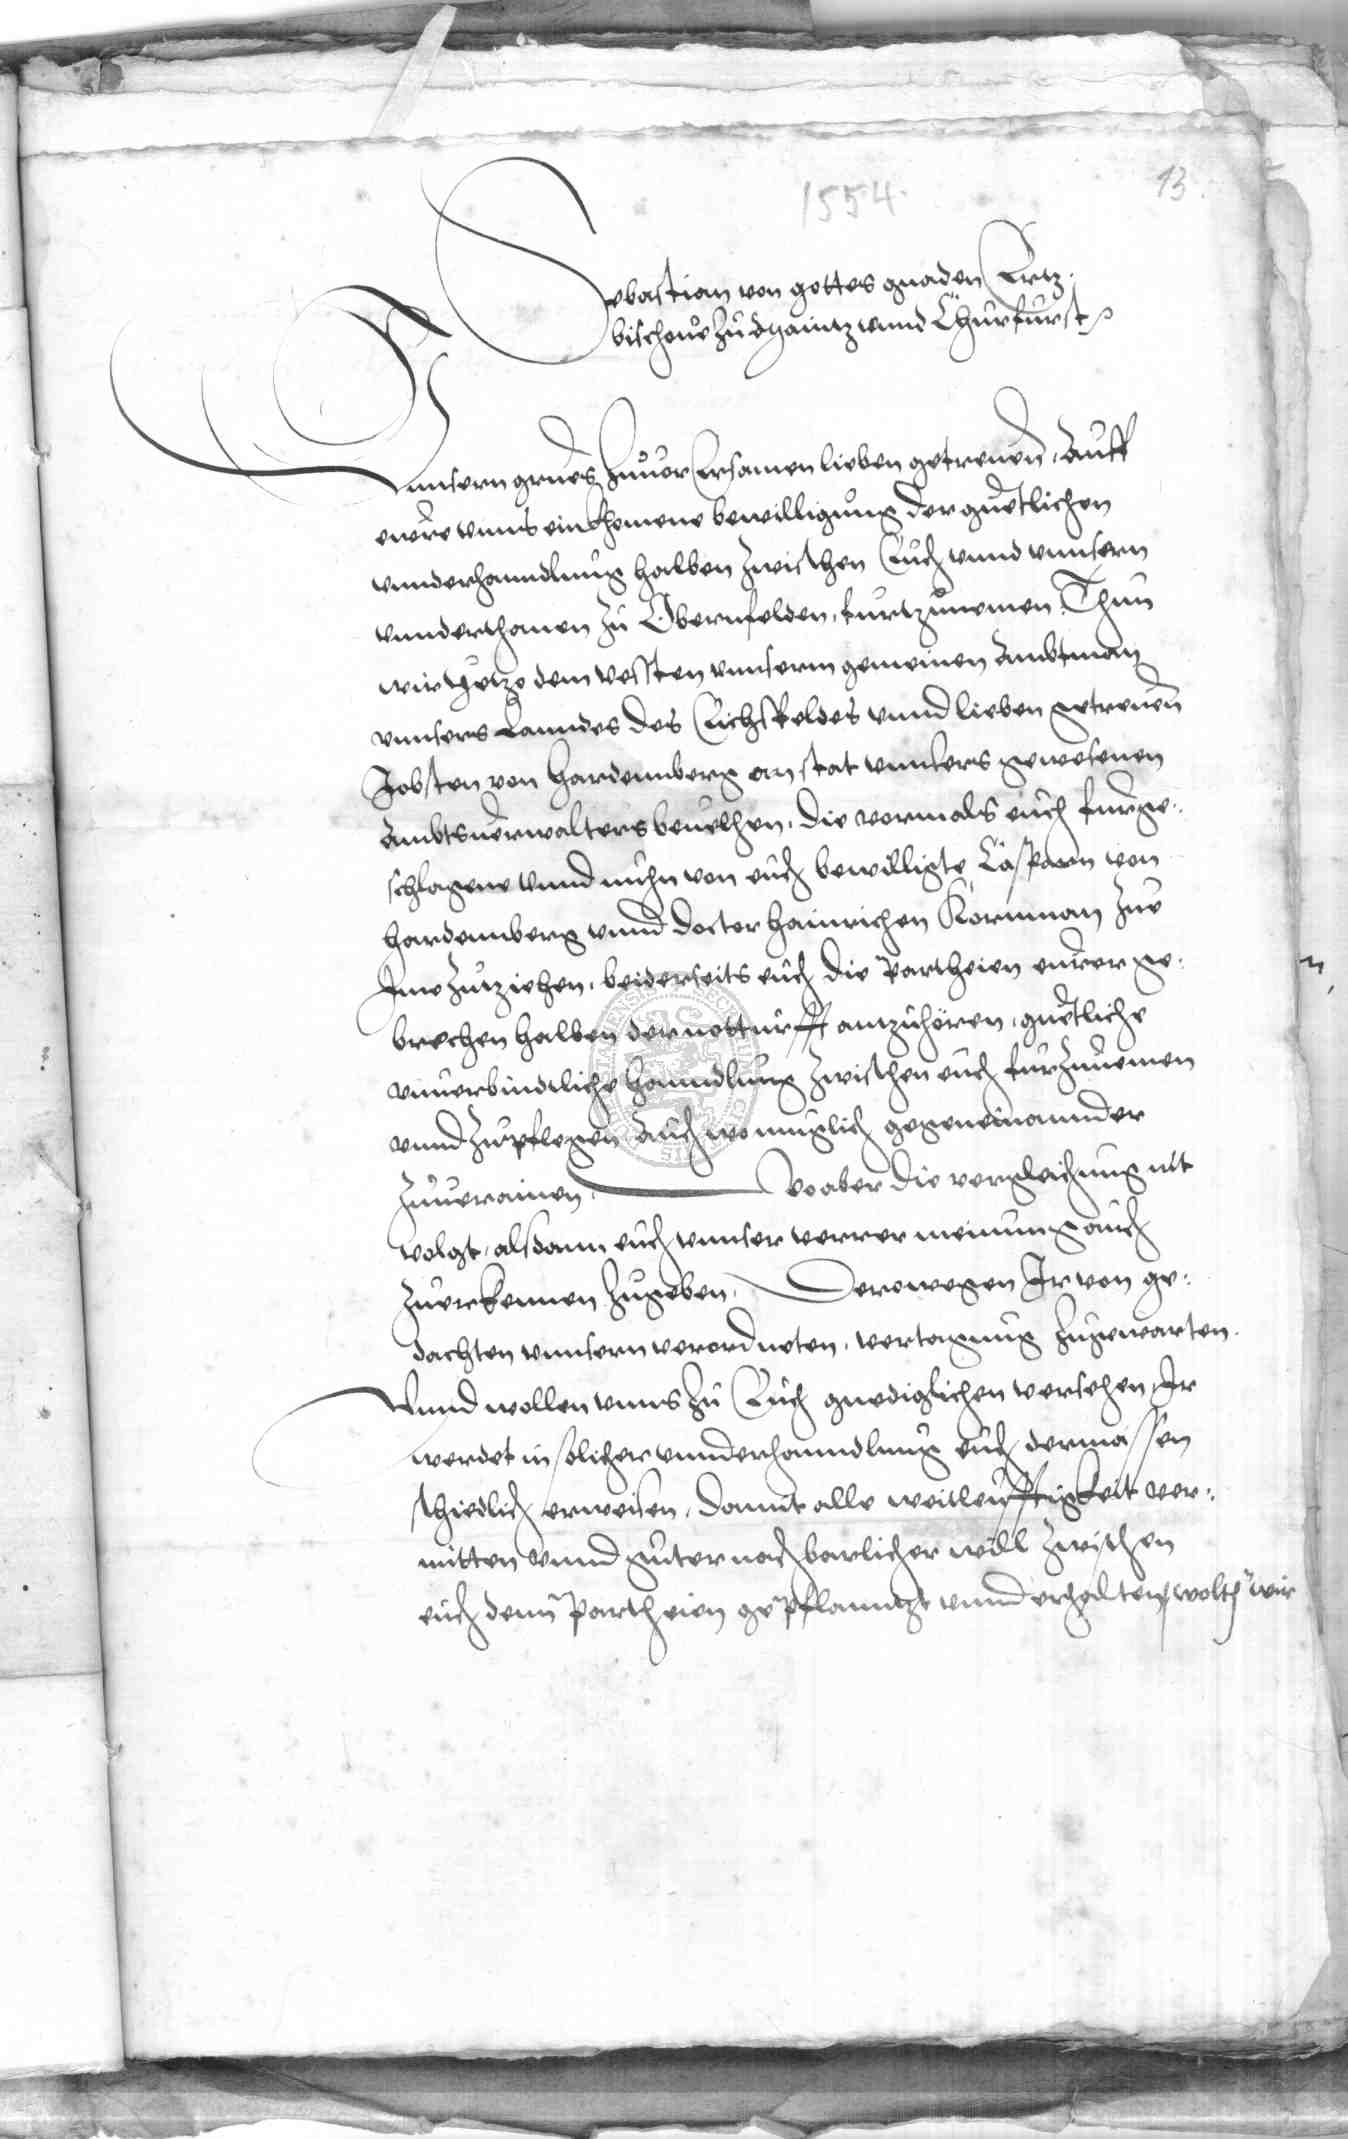 1554.
13
Sebastian von gottes gnaden Ertz:
bischoue zu Maintz vnnd Churfurst ~
Vnnsern grues zuuor Ersamen lieben getreuen, Auff
ewere vnns einkhomene bewilligung der guetlichen
vnnderhanndlung halben zwischen Euch vnnd vnnsern
vnnderthanen zu Obernfelden, furtzunemen, Thun
wir ytzo dem vessten vnnserm gemeinen Ambtman
vnnsers Lanndes des Eichsfeldes vnnd lieben getreuen
Jobsten von Hardennberg an stat vnnsers gewesenen
Ambtsuerwalters beuelhen, die vormals euch furge:
schlagene vnnd nuhn von euch bewilligte Casparn von
Hardennberg vnnd Doctor Hainrichen Kornman zue
Ime zutziehen, beiderseits euch die Partheien eurer ge:
brechen halben der notturfft antzuhören, guetliche
vnuerbindtliche hanndlung zwischen euch furzunemen
vnnd zupflegen Auch wo muglich gegeneinannder
zuuerainen, Wo aber die vergleichung nit
volgt, alsdann euch vnnser verrer meinung auch
zuerkennen zugeben, Derowegen Ir von ge:
dachten vnnsern verordneten, vertagung zugewarten.
Vnnd wollen vnns zu Euch gnediglichen versehen, Ir
werdet in solicher vnnderhanndlung euch dermassen
schiedlich erweisen, damit alle weitleufftigkeit ver:
mitten vnnd guter nachbarlicher will zwischen
euch denn Partheien gepflanntzt vnnd erhalten, wolten wir